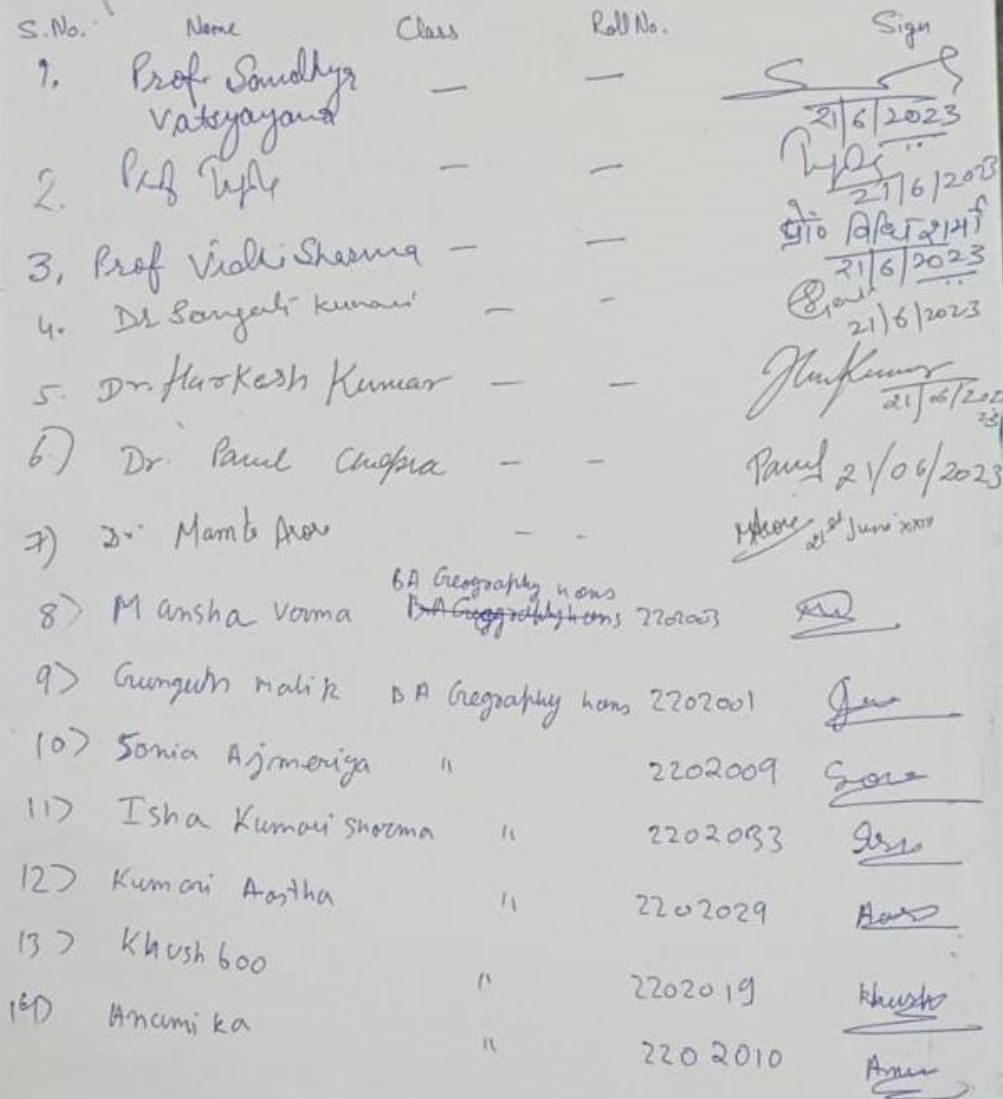 S.No. Name Class Roll No. Sign
1. Prof. Sandhya — —
Vatsyayana
21/6/2023
2. Prof — —
21/6/2023
3. Prof Vidhi Sharma — — प्रो० विधि शर्मा
21/6/2023
4. Dr Sangeeta Kumari — -
21/6/2023
5. Dr. Harkesh Kumar — —
21/06/2023
6) Dr. Parul Chopra - - Parul 21/06/2023
7) Dr. Mamta Arora - - MArora 21st June
BA Geography hons
8) Mansha Verma BA Geography hons 2202003
9) Gungun Malik BA Geography hons 2202001
10) Sonia Ajmeriya " 2202009
11) Isha Kumari Sharma " 2202033
12) Kumari Aastha " 2202029
13) Khushboo " 2202019 Khush
14) Anamika " 2202010